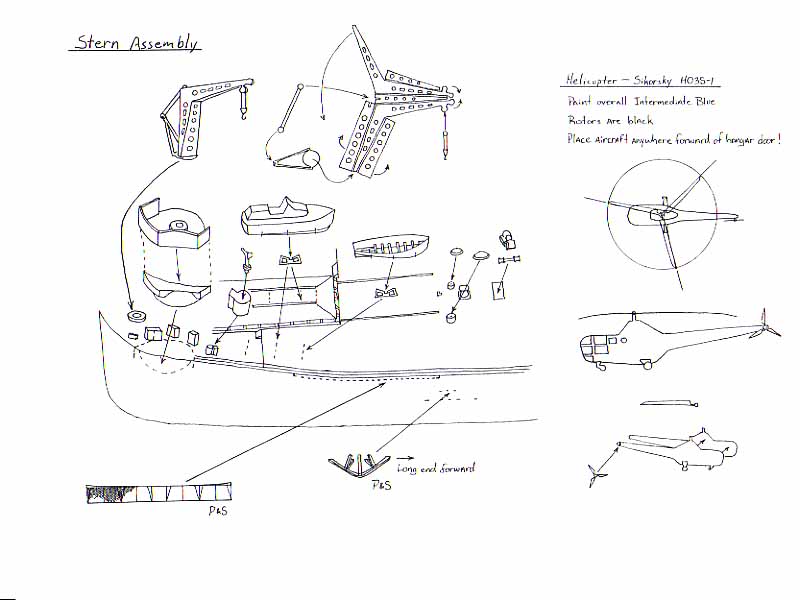 Stern Assembly
Helicopter – Sikorsky HO3S-1
Paint overall Intermediate Blue
Rotors are black
Place Aircraft anywhere forward of hangar door!
Long end forward
P&S
P&S